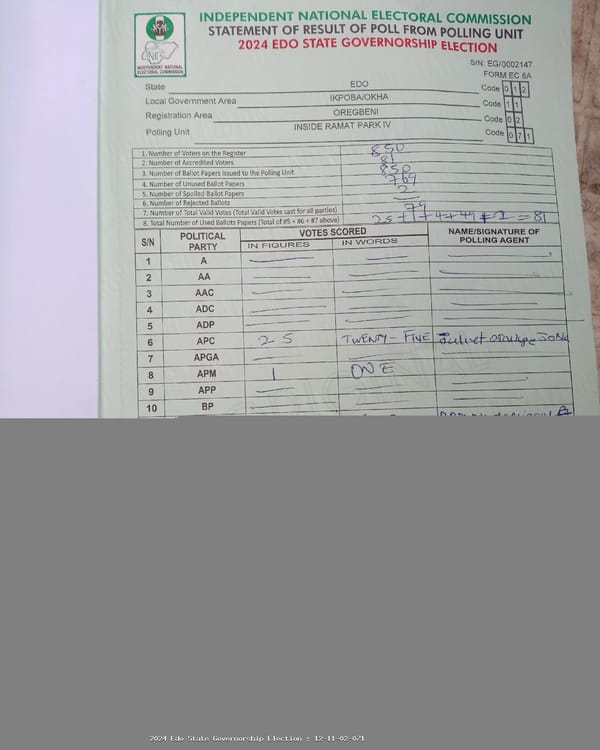 INDEPENDENT NATIONAL ELECTORAL COMMISSION
STATEMENT OF RESULT OF POLL FROM POLLING UNIT
2024 EDO STATE GOVERNORSHIP ELECTION
INDEPENDENT NATIONAL ELECTORAL COMMISSION
S/N: EG/0002147
FORM EC 8A
State EDO Code 0 1 2
Local Government Area IKPOBA/OKHA Code 1 1
Registration Area OREGBENI Code 0 2
Polling Unit INSIDE RAMAT PARK IV Code 0 7 1
1. Number of Voters on the Register 850
2. Number of Accredited Voters 81
3. Number of Ballot Papers Issued to the Polling Unit 850
4. Number of Unused Ballot Papers 769
5. Number of Spoiled Ballot Papers 2
6. Number of Rejected Ballots
7. Number of Total Valid Votes (Total Valid Votes cast for all parties) 79
8. Total Number of Used Ballots Papers (Total of #5 + #6 + #7 above) 25 + 1 + 4 + 49 + 2 = 81
S/N POLITICAL PARTY VOTES SCORED NAME/SIGNATURE OF POLLING AGENT
IN FIGURES IN WORDS
1 A
2 AA
3 AAC
4 ADC
5 ADP
6 APC 25 TWENTY-FIVE
7 APGA
8 APM 1 ONE
9 APP
10 BP
2024 Edo State Governorship Election : 12-11-02-071